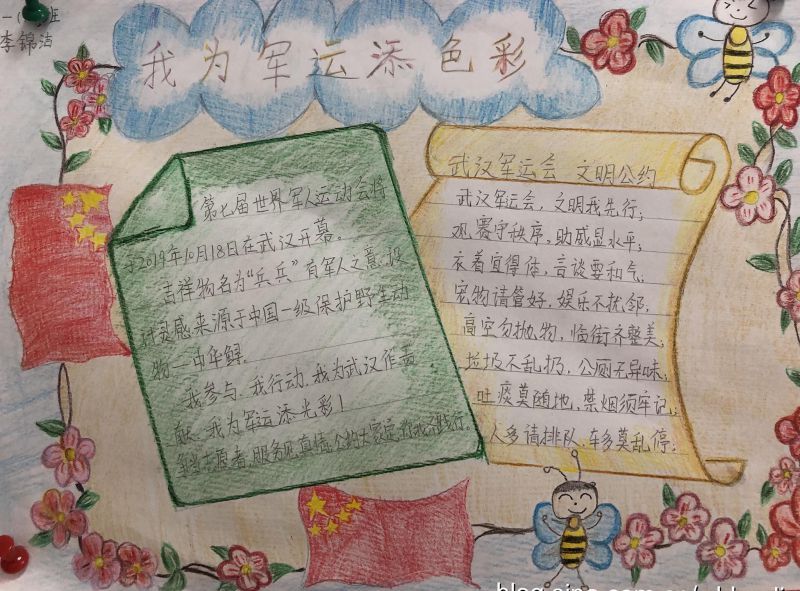 一(
班
李锦洁
我为军运添色彩
第七届世界军人运动会将
于2019年10月18日在武汉开幕。
吉祥物名为“兵兵”有军人之意,设
计灵感来源于中国一级保护野生动
物一中华鲟.
我参与.我行动.我为武汉作贡
献.我为军运添光彩!
争当志愿者,服务见真情.公约大家定.
武汉军运会 文明公约
武汉军运会,文明我先行;
观赛守秩序,助威显水平;
衣着宜得体,言谈要和气,
宠物请管好,娱乐不扰邻;
高空勿抛物,临街齐整美;
垃圾不乱扔,公厕无异味;
吐痰莫随地,禁烟须牢记;
人多请排队,车多莫乱停;